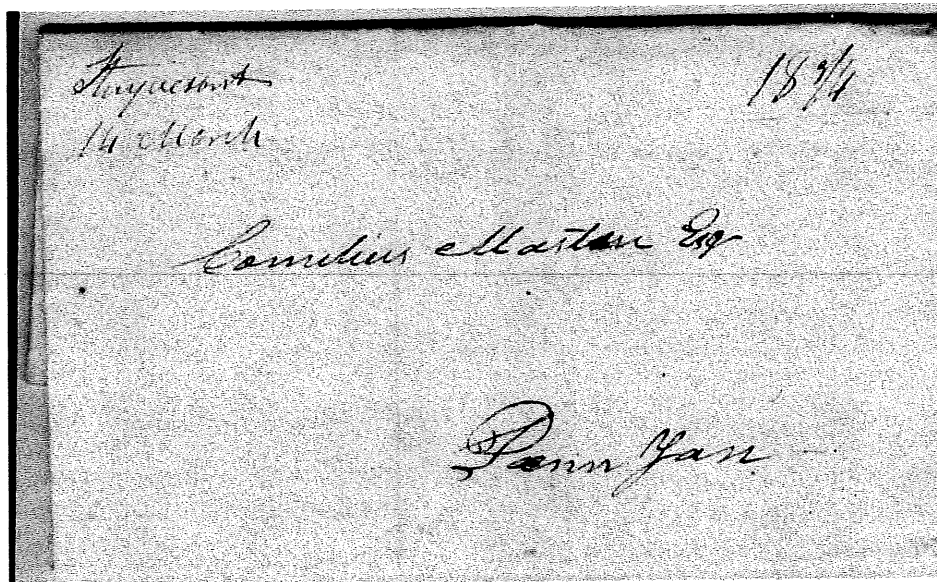 Stuyvesant 18 3/4
14 March
Cornelius Masten Esq
Penn Yan